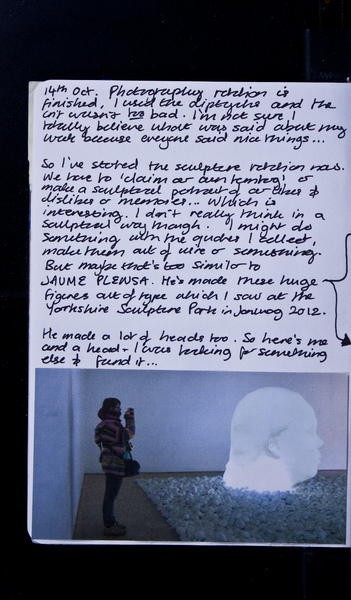 14th Oct. Photography rotation is
finished, I used the diptychs and the
crit wasn't too bad. I'm not sure I
totally believe what was said about my
work because everyone said nice things...
So I've started the sculpture rotation now.
We have to 'claim our own territory' or
make a sculptural portrait of our likes &
dislikes or memories... Which is
interesting. I don't really think in a
sculptural way though. I might do
something with the quotes I collect,
make them out of wire or something.
But maybe that's too similar to
JAUME PLENSA. He's made these huge
figures out of type which I saw at the
Yorkshire Sculpture Park in January 2012.
He made a lot of heads too. So here's me
and a head - I was looking for something
else & found it...